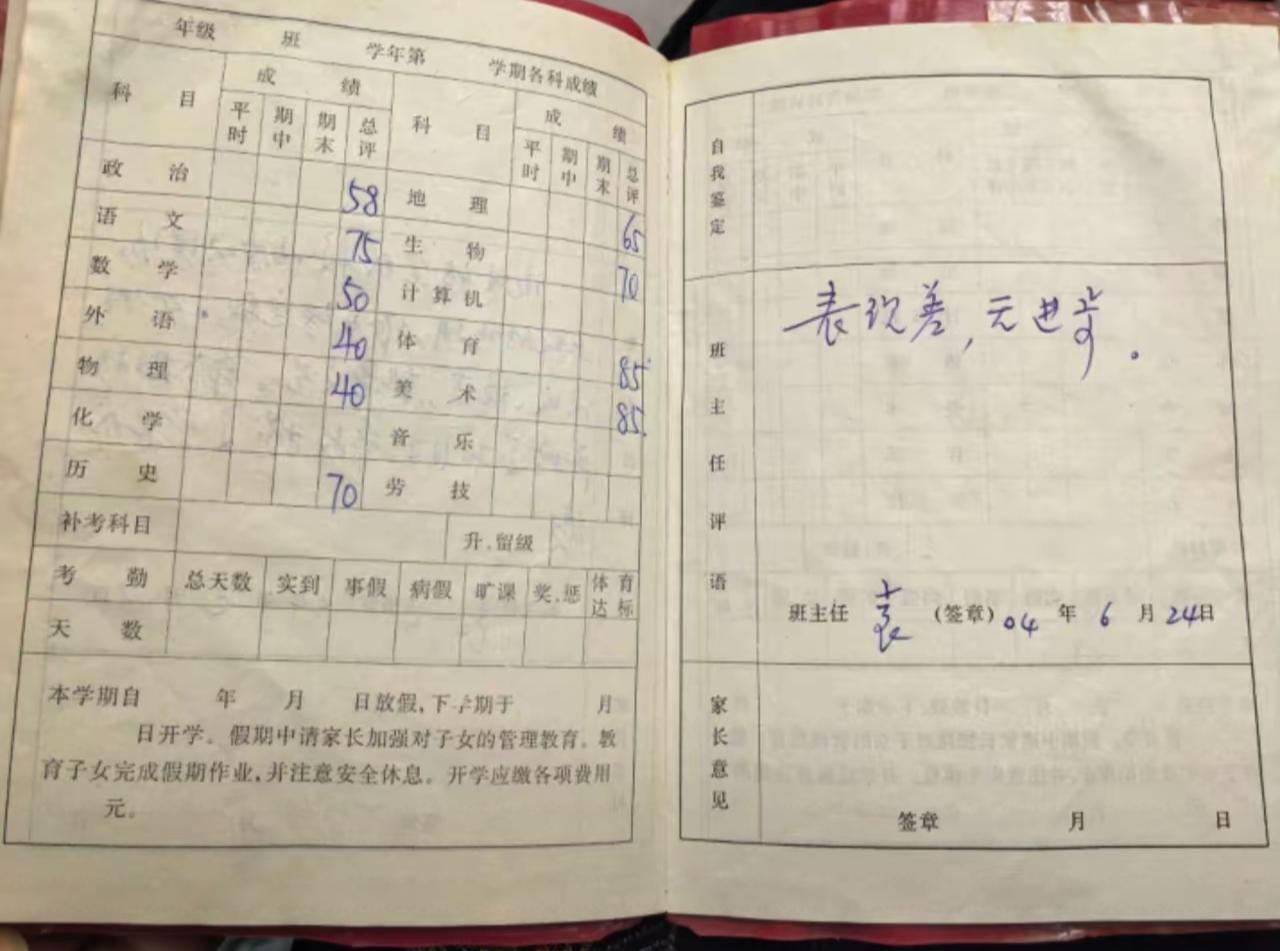 年级 班 学年第 学期各科成绩
科目 成绩 科目 成绩
平时 期中 期末 总评 平时 期中 期末 总评
政治 58 地理 65
语文 75 生物 70
数学 50 计算机
外语 40 体育 85
物理 40 美术 85
化学 音乐
历史 70 劳技
补考科目 升、留级
考勤 总天数 实到 事假 病假 旷课 奖、惩 体育达标
天数
本学期自 年 月 日放假,下学期于 月
日开学。假期中请家长加强对子女的管理教育。教
育子女完成假期作业,并注意安全休息。开学应缴各项费用
元。
自我鉴定
班主任评语
表现差,无进步。
班主任 袁 (签章) 04 年 6 月 24日
家长意见
签章 月 日